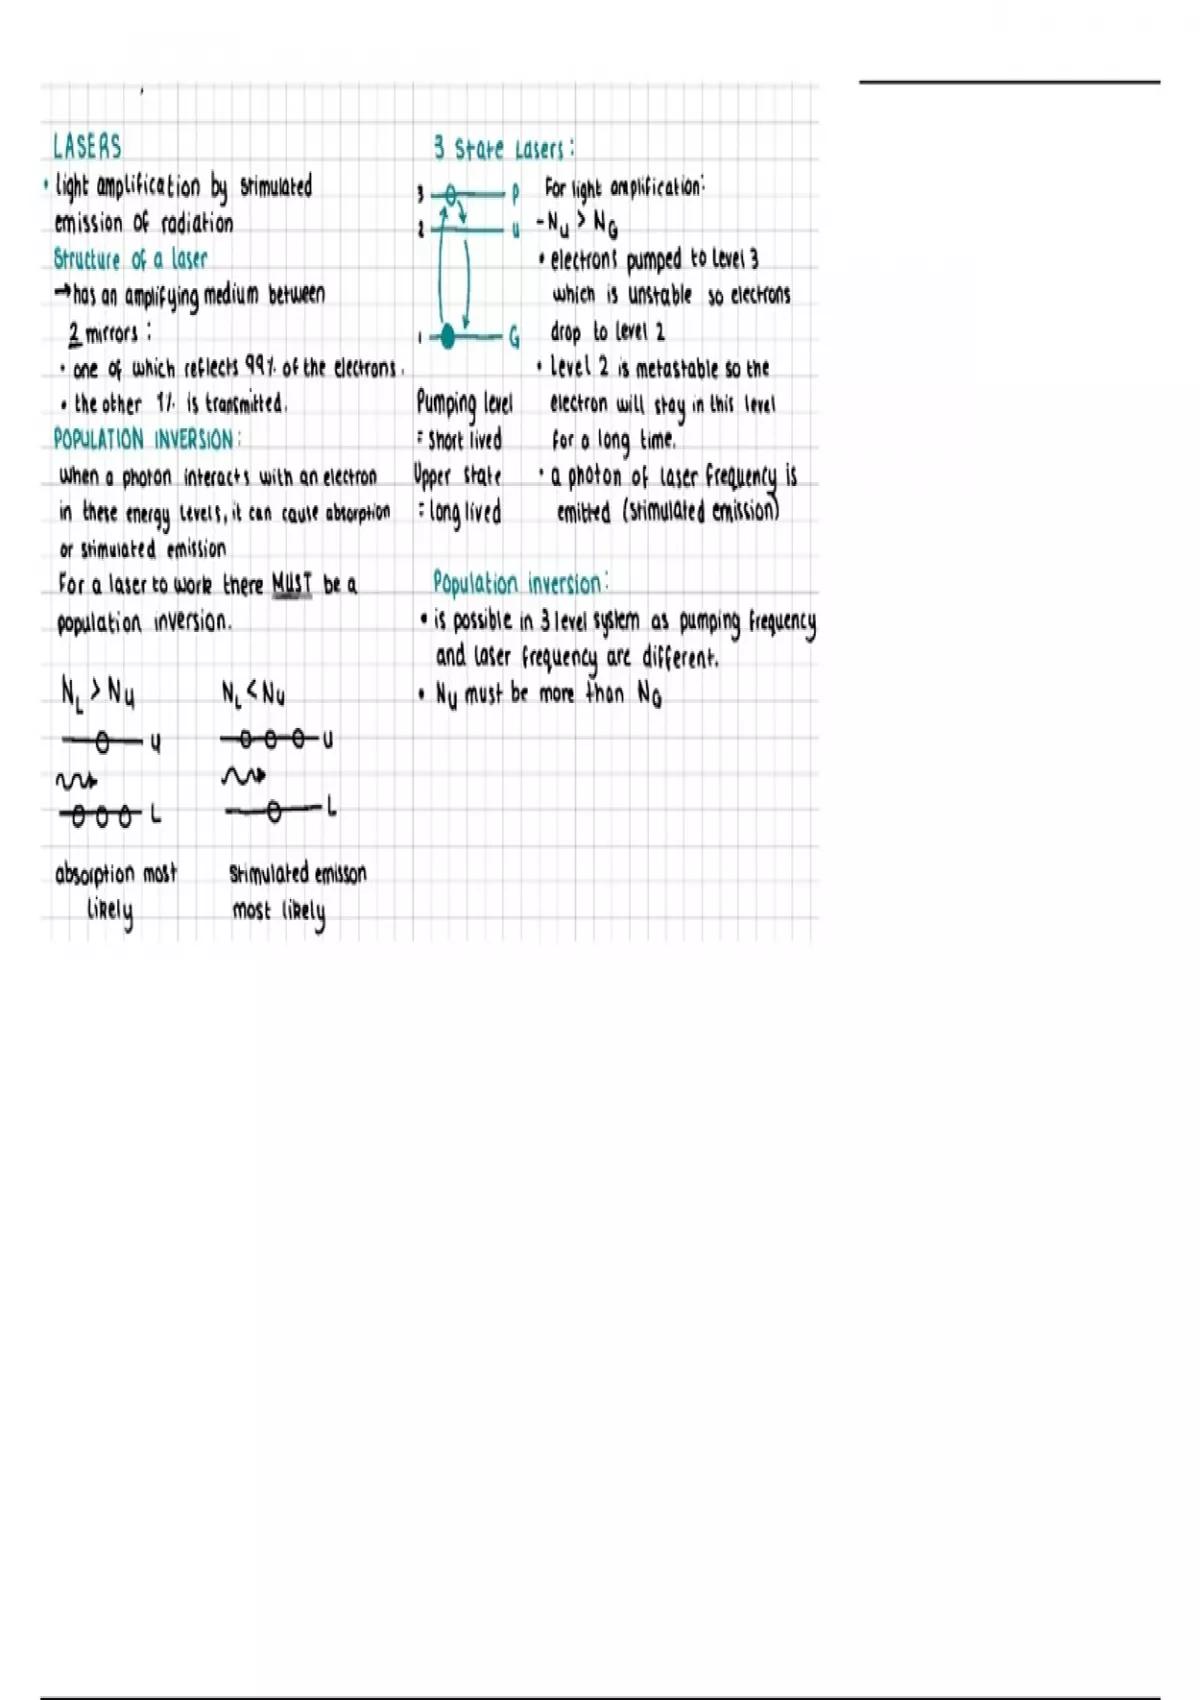 LASERS
• light amplification by stimulated
emission of radiation
Structure of a laser
→ has an amplifying medium between
2 mirrors :
• one of which reflects 99% of the electrons.
• the other 1% is transmitted.
POPULATION INVERSION:
When a photon interacts with an electron
in these energy levels, it can cause absorption
or stimulated emission
For a laser to work there MUST be a
population inversion.
NL > Nu
NL < Nu
U
U
L
L
absorption most
likely
Stimulated emisson
most likely
3 State Lasers:
3 P
2 U
1 G
Pumping level
= short lived
Upper state
= long lived
For light amplification:
- Nu > NG
• electrons pumped to level 3
which is unstable so electrons
drop to level 2
• Level 2 is metastable so the
electron will stay in this level
for a long time.
• a photon of laser frequency is
emitted (stimulated emission)
Population inversion:
• is possible in 3 level system as pumping frequency
and laser frequency are different.
• Nu must be more than NG